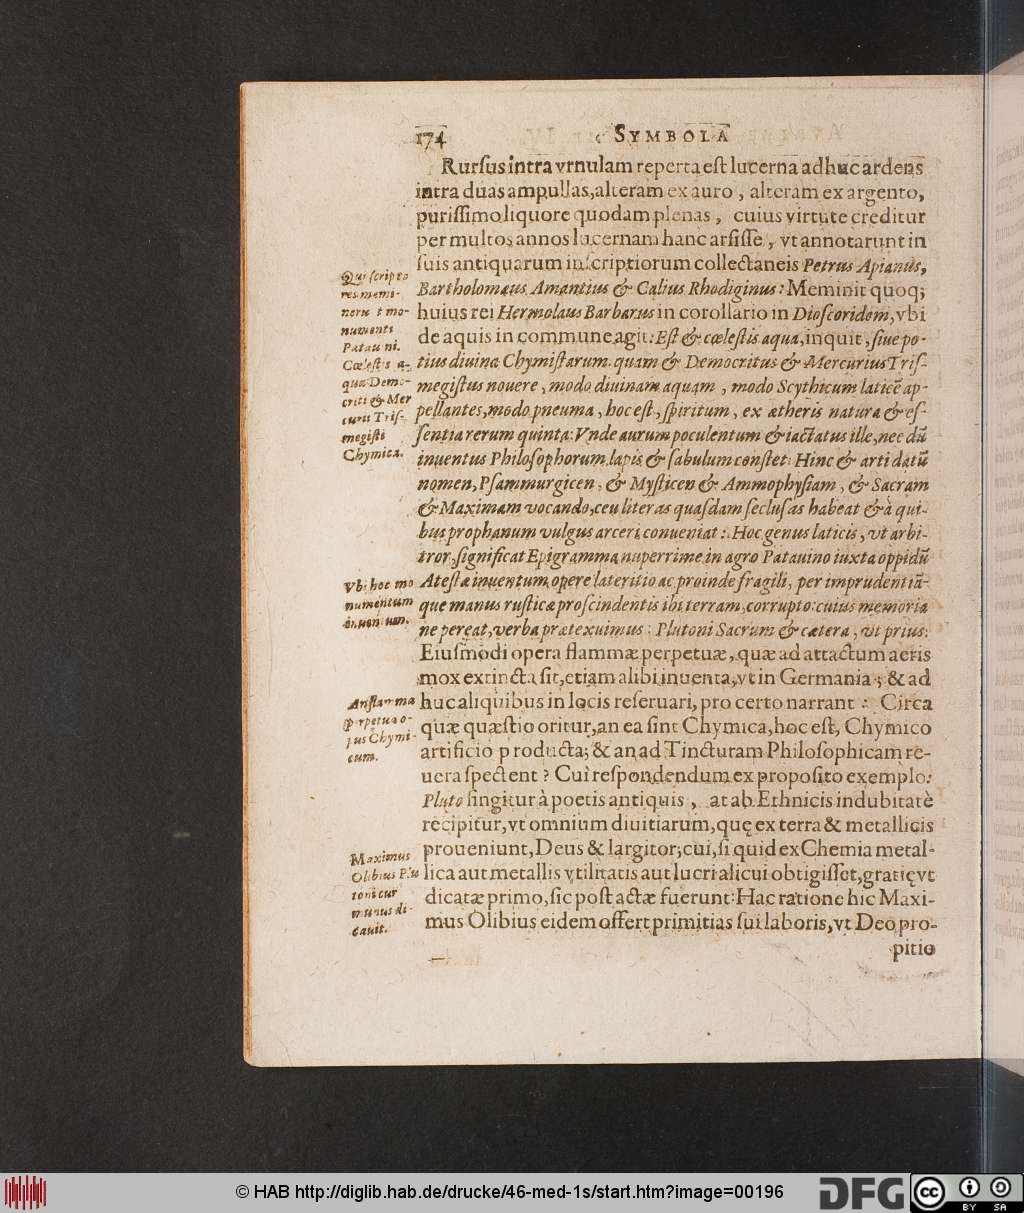 174
SYMBOLA
Rursus intra vrnulam reperta est lucerna adhuc ardens
intra duas ampullas, alteram ex auro, alteram ex argento,
purissimo liquore quodam plenas, cuius virtute creditur
per multos annos lucernam hanc arsisse, vt annotarunt in
suis antiquarum inscriptiorum collectaneis Petrus Apianus,
Bartholomæus Amantius & Cælius Rhodiginus: Meminit quoq;
huius rei Hermolaus Barbarus in corollario in Dioscoridem, vbi
de aquis in commune agit: Est & cœlestis aqua, inquit, siue po-
tius diuina Chymistarum. quam & Democritus & Mercurius Tris-
megistus nouere, modo diuinam aquam, modo Scythicum laticē ap-
pellantes, modo pneuma, hoc est, spiritum, ex ætheris natura & es-
sentia rerum quinta: Vnde aurum poculentum & iactatus ille, nec dū
inuentus Philosophorum lapis & sabulum constet: Hinc & arti datū
nomen, Psammurgicen, & Mysticen & Ammophysiam, & Sacram
& Maximam vocando, ceu literas quasdam seclusas habeat & à qui-
bus prophanum vulgus arceri conueniat: Hoc genus laticis, vt arbi-
tror, significat Epigramma nuperrime in agro Patauino iuxta oppidū
Atestæ inuentum opere lateritio ac proinde fragili, per imprudentiā-
que manus rusticæ proscindentis ibi terram, corrupto: cuius memoria
ne pereat, verba prætexuimus: Plutoni Sacrum & cætera, vt prius:
Eiusmodi opera flammæ perpetuæ, quæ ad attactum aeris
mox extincta sit, etiam alibi inuenta, vt in Germania; & ad
huc aliquibus in locis reseruari, pro certo narrant: Circa
quæ quæstio oritur, an ea sint Chymica, hoc est, Chymico
artificio producta; & an ad Tincturam Philosophicam re-
uera spectent? Cui respondendum ex proposito exemplo:
Pluto fingitur à poetis antiquis, at ab Ethnicis indubitatè
recipitur, vt omnium diuitiarum, quę ex terra & metallicis
proueniunt, Deus & largitor; cui, si quid ex Chemia metal-
lica aut metallis vtilitatis aut lucri alicui obtigisset, gratię vt
dicatæ primo, sic post actæ fuerunt: Hac ratione hic Maxi-
mus Olibius eidem offert primitias sui laboris, vt Deo pro-
pitio
Qui scripto
res memi-
nerũt mo-
numenti
Patauini.
Cœlestis a-
qua Demo-
criti & Mer
curii Tris-
megisti
Chymica.
Vbi hoc mo
numentum
inuentum.
An flamma
perpetua o-
pus Chymi-
cum.
Maximus
Olibius Plu
toni cur
munus di-
cauit.
© HAB http://diglib.hab.de/drucke/46-med-1s/start.htm?image=00196
DFG
CC
BY SA